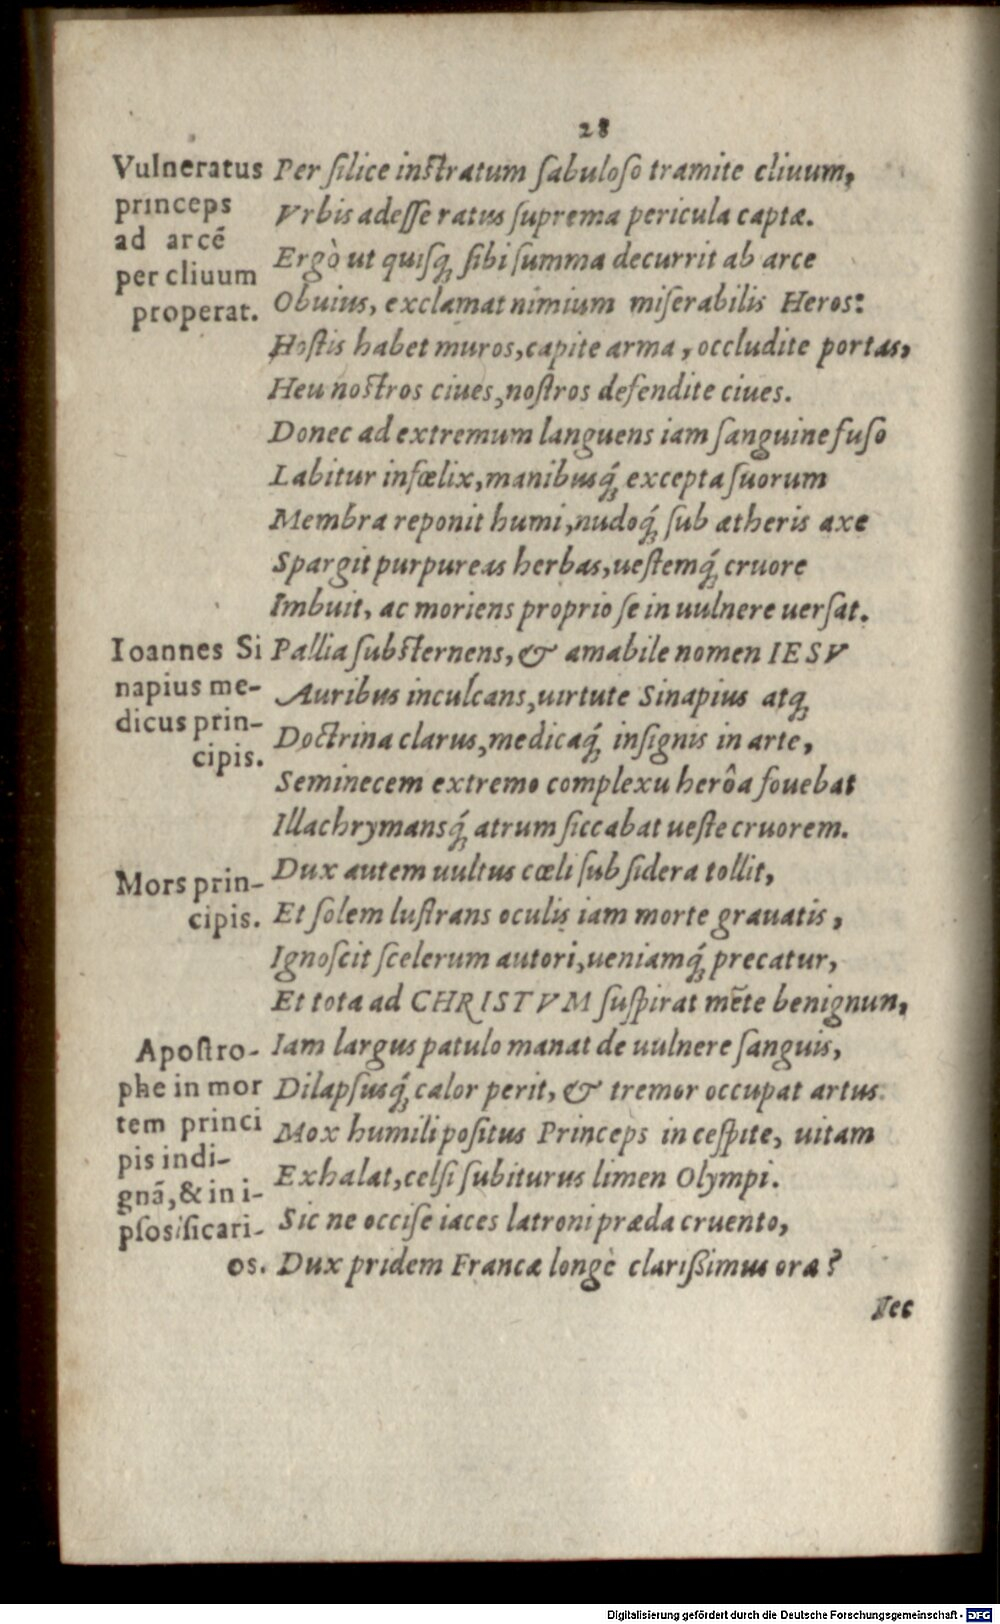 28
Vulneratus
princeps
ad arcẽ
per cliuum
properat.
Per ſilice inſtratum ſabuloſo tramite cliuum,
Vrbis adeſſe ratus ſuprema pericula captæ.
Ergò ut quiſq; ſibi ſumma decurrit ab arce
Obuius, exclamat nimium miſerabilis Heros:
Hoſtis habet muros, capite arma, occludite portas,
Heu noſtros ciues, noſtros defendite ciues.
Donec ad extremum languens iam ſanguine fuſo
Labitur infœlix, manibusq́; excepta ſuorum
Membra reponit humi, nudoq́; ſub ætheris axe
Spargit purpureas herbas, ueſtemq́; cruore
Imbuit, ac moriens proprio ſe in uulnere uerſat.
Ioannes Si
napius me-
dicus prin-
cipis.
Pallia ſubſternens, & amabile nomen IESV
Auribus inculcans, uirtute Sinapius atq;
Doctrina clarus, medicaq́; inſignis in arte,
Seminecem extremo complexu herôa fouebat
Illachrymansq́; atrum ſiccabat ueſte cruorem.
Mors prin-
cipis.
Dux autem uultus cœli ſub ſidera tollit,
Et ſolem luſtrans oculis iam morte grauatis,
Ignoſcit ſcelerum autori, ueniamq́; precatur,
Et tota ad CHRISTVM ſuſpirat mẽte benignun,
Apoſtro-
phe in mor
tem princi
pis indi-
gnã, & in i-
pſos ſicari-
os.
Iam largus patulo manat de uulnere ſanguis,
Dilapſusq́; calor perit, & tremor occupat artus.
Mox humili poſitus Princeps in ceſpite, uitam
Exhalat, celſi ſubiturus limen Olympi.
Sic ne occiſe iaces latroni præda cruento,
Dux pridem Francæ longè clariſsimus oræ?
Nec
Digitalisierung gefördert durch die Deutsche Forschungsgemeinschaft - DFG